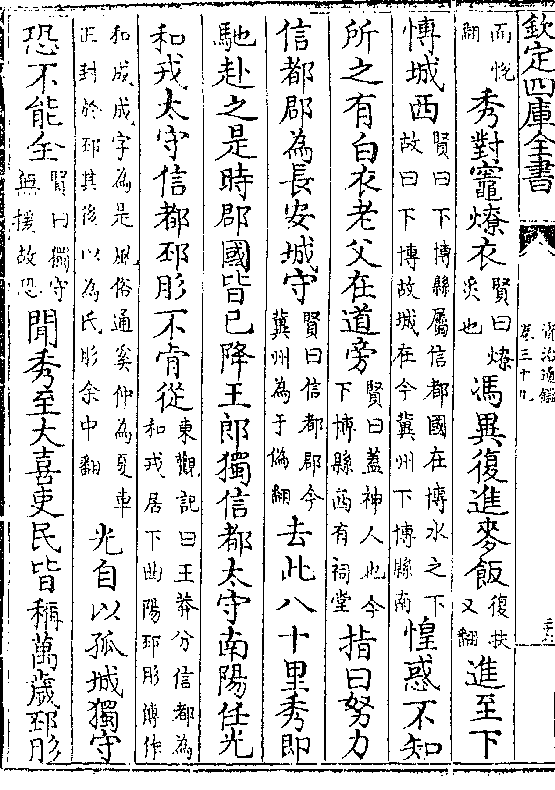 欽定四庫全書
資治通鑑
卷三十九
而悅
翻
秀對竈燎衣
賢曰燎
炙也
馮異復進麥飯
復扶
又翻
進至下
博城西
賢曰下博縣屬信都國在博水之下
故曰下博故城在今冀州下博縣南
惶惑不知
所之有白衣老父在道旁
賢曰蓋神人也今
下博縣西有祠堂
指曰努力
信都郡為長安城守
賢曰信都郡今
冀州為于偽翻
去此八十里秀即
馳赴之是時郡國皆已降王郎獨信都太守南陽任光
和戎太守信都邳肜不肯從
東觀記曰王莽分信都為
和戎居下曲陽邳肜傳作
和成成字為是風俗通奚仲為夏車
正封於邳其後以為氏肜余中翻
光自以孤城獨守
恐不能全
賢曰獨守
無援故恐
聞秀至大喜吏民皆稱萬歲邳肜